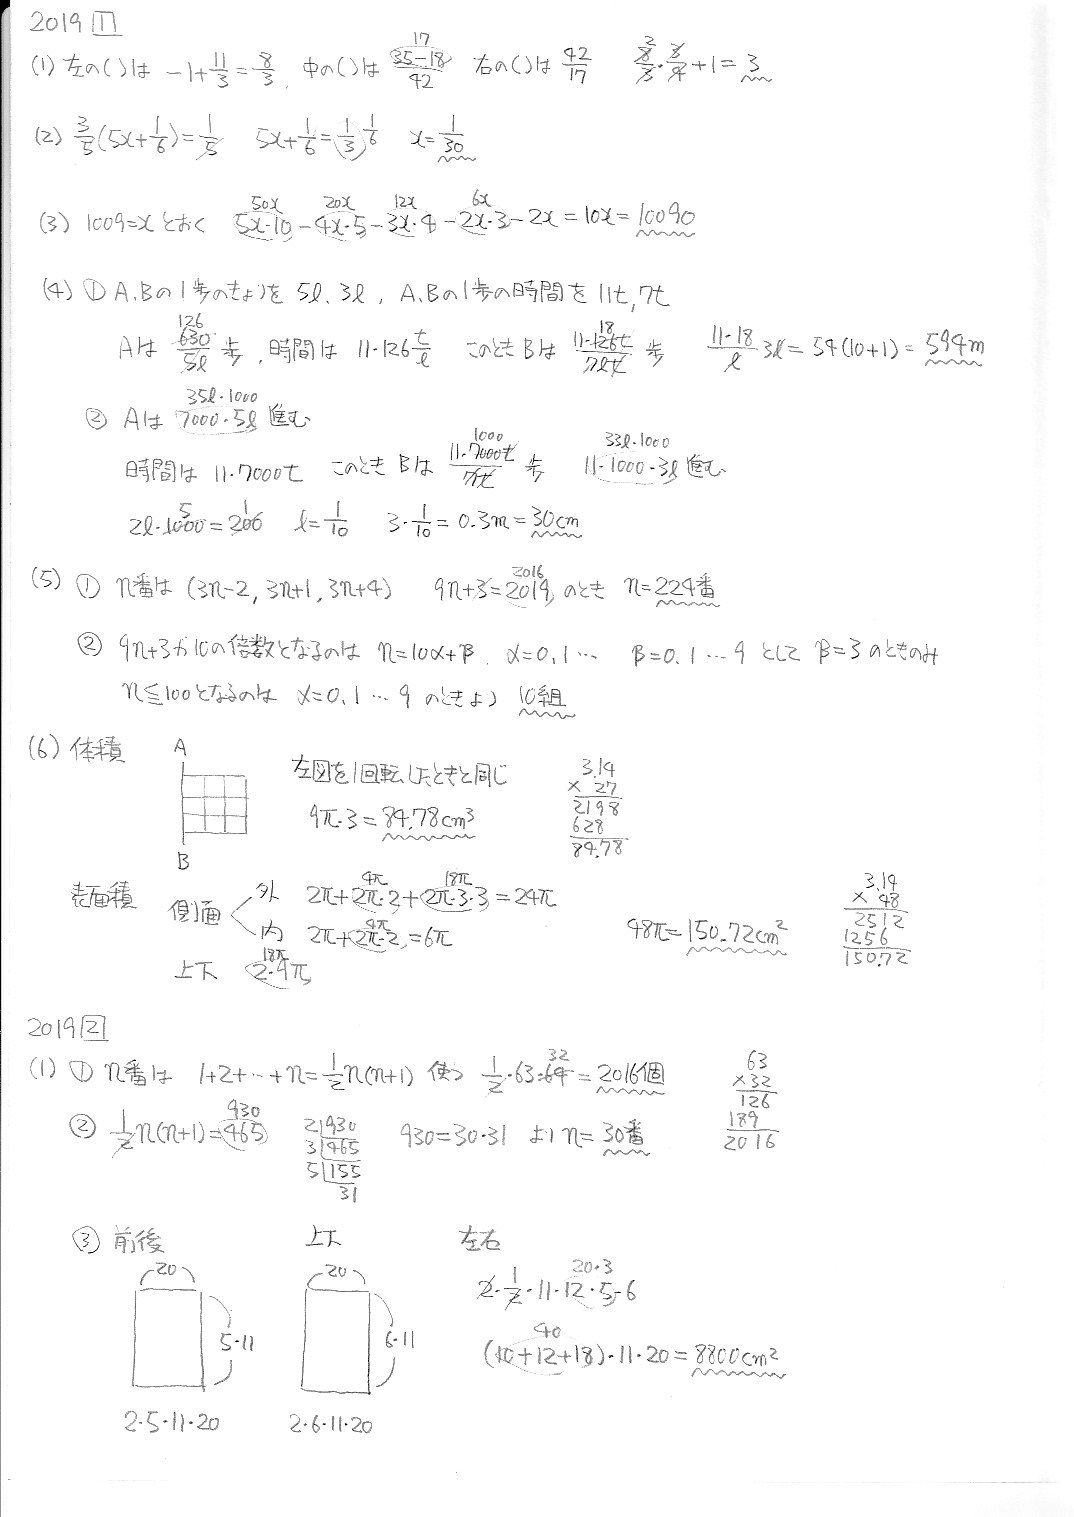 2019 1
(1) 左の( )は -1+11/3=8/3, 中の( )は 35-18/42 17 右の( )は 42/17 8/3・3/4+1=3 2
(2) 3/5(5x+1/6)=1/5 5x+1/6=1/3 1/6 x=1/30
(3) 1009=xとおく 5x・10-4x・5-3x・4-2x・3-2x=10x=10090 50x 20x 12x 6x
(4) ① A,Bの1歩のきょりを 5l, 3l, A,Bの1歩の時間を 11t, 7t
Aは 630/5l 歩, 時間は 11・126 t/l このとき Bは 11・126t/7lt 歩 11・18/l 3l=54(10+1)=594m 126 18
② Aは 7000・5l 進む 35l・1000
時間は 11・7000t このとき Bは 11・7000t/7t 歩 11・1000・3l 進む 1000 33l・1000
2l・1000=200 l=1/10 3・1/10=0.3m=30cm 5 1
(5) ① n番は (3n-2, 3n+1, 3n+4) 9n+3=2019 のとき n=224番 2016
② 9n+3が10の倍数となるのは n=10α+β, α=0,1… β=0,1…9 として β=3のときのみ
n≦100となるのは α=0,1…9 のときより 10組
(6) 体積 A
左図を1回転したときと同じ
9π・3=84.78cm³
B
3.14
× 27
2198
628
84.78
表面積 側面
外 2π+2π・2+2π・3・3=24π 4π 18π
内 2π+2π・2=6π 4π
上下 2・9π 18π
48π=150.72cm²
3.14
× 48
2512
1256
150.72
2019 2
(1) ① n番は 1+2+…+n=1/2n(n+1) 使う 1/2・63・64=2016個 32
63
×32
126
189
2016
② 1/2n(n+1)=465 930
2 930
3 465
5 155
31
930=30・31 より n=30番
③ 前後 上下 左右
20 20
5・11 6・11
2・5・11・20 2・6・11・20
2・1/2・11・12・5・6 20・3
(10+12+18)・11・20=8800cm² 40